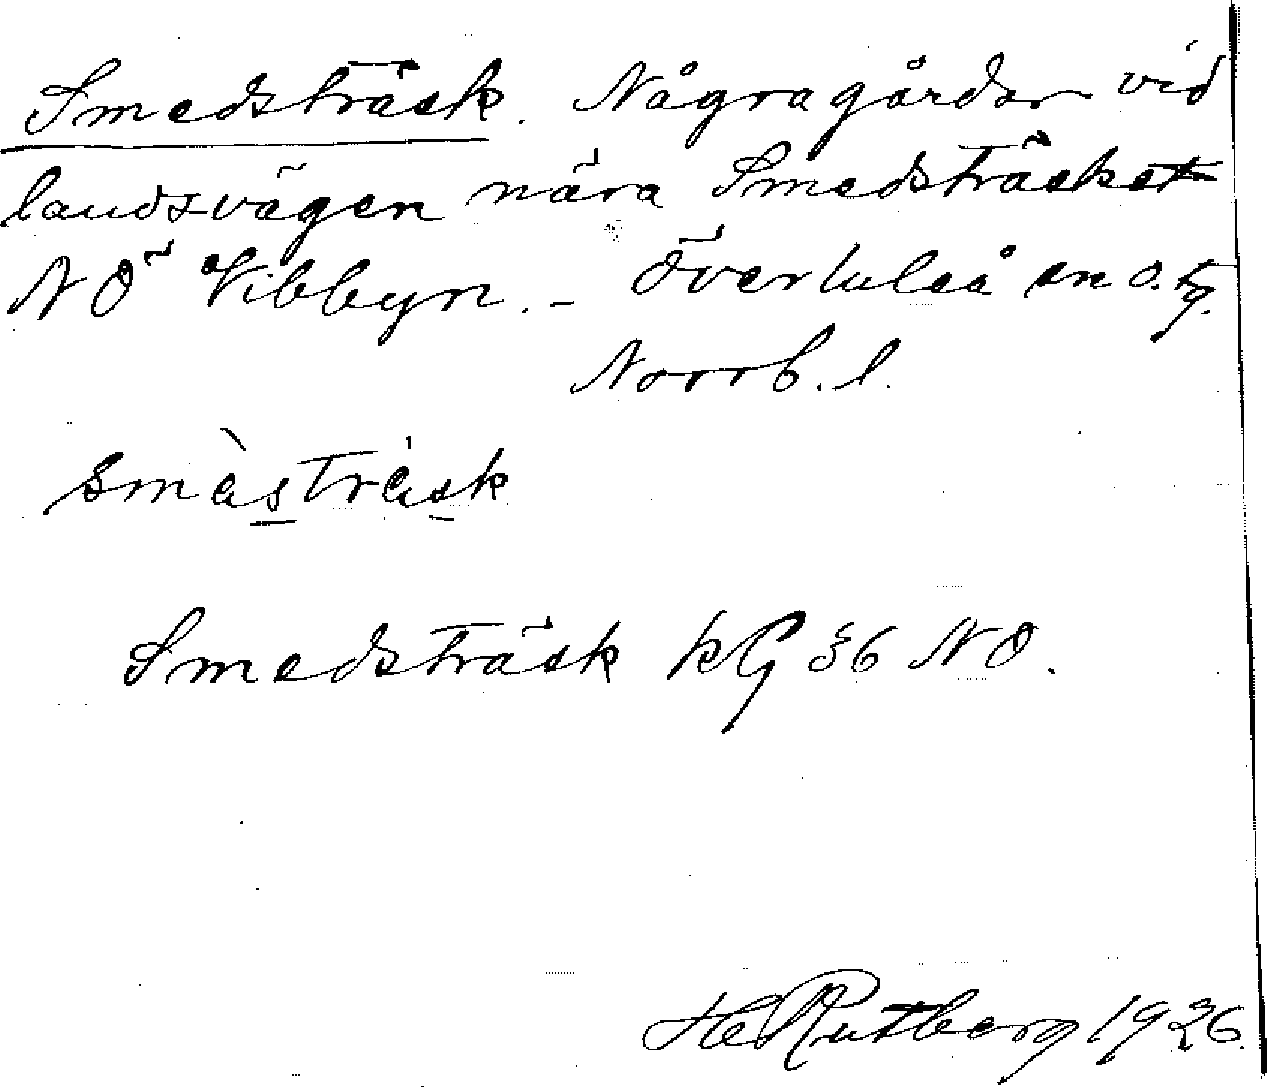 Smedsträsk. Några gårdar vid
landsvägen nära Smedsträsket
NÖ Vibbyn. - Överluleå sn o. tg.
Norrb. l.
smàsträsk
Smedsträsk kG 36 NO.
HeRutberg 1926.